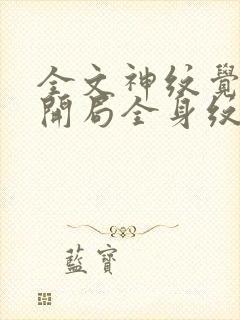 全文神纹觉
開局全身纹
藍寶